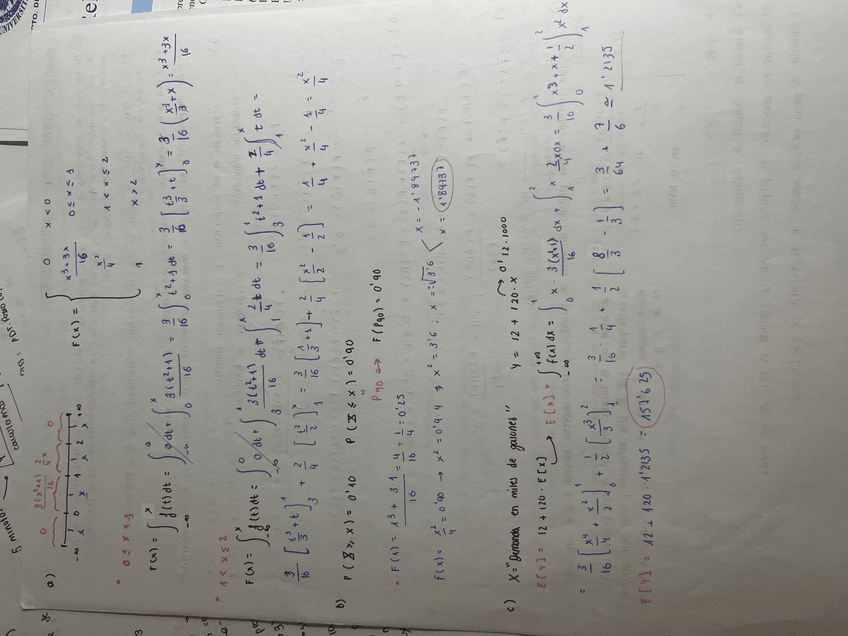 a)
0   3(x²+1)/16   2/4 x   0
-∞   x   0   x   1   x   2   x   +∞
F(x) = { 0   x < 0
x³+3x/16   0 ≤ x ≤ 1
x²/4   1 < x ≤ 2
1   x > 2
• 0 ≤ x ≤ 1
F(x) = ∫_{-∞}^{x} f(t) dt = ∫_{-∞}^{0} 0 dt + ∫_{0}^{x} 3(t²+1)/16 dt = 3/16 ∫_{0}^{x} t²+1 dt = 3/16 [t³/3 + t]_{0}^{x} = 3/16 (x³/3 + x) = x³+3x/16
• 1 < x ≤ 2
F(x) = ∫_{-∞}^{x} f(t) dt = ∫_{-∞}^{0} 0 dt + ∫_{0}^{1} 3(t²+1)/16 dt + ∫_{1}^{x} 2/4 t dt = 3/16 ∫_{0}^{1} t²+1 dt + 2/4 ∫_{1}^{x} t dt =
3/16 [t³/3 + t]_{0}^{1} + 2/4 [t²/2]_{1}^{x} = 3/16 [1/3 + 1] + 2/4 · [x²/2 - 1/2] = 1/4 + x²/4 - 1/4 = x²/4
b)   P(X ≥ x) = 0'10   P(X ≤ x) = 0'90
P90 → F(P90) = 0'90
• F(x) = 1³ + 3·1/16 = 4/16 = 1/4 = 0'25
F(x) = x²/4 = 0'90 → x² = 0'9·4 → x² = 3'6; x = √3'6 < x = -1'89737
x = 1'89737
c)   X = "Demanda en miles de galones"   y = 12 + 120·x → 0'12·1000
E[Y] = 12 + 120·E[X] → E[X] = ∫_{-∞}^{+∞} f(x) dx = ∫_{0}^{1} x · 3(x²+1)/16 dx + ∫_{1}^{2} x · 2/4 x dx = 3/16 ∫_{0}^{1} x³ + x + 1/2 ∫_{1}^{2} x² dx
= 3/16 [x⁴/4 + x²/2]_{0}^{1} + 1/2 [x³/3]_{1}^{2} = 3/16 · 1/4 + 1/2 [8/3 - 1/3] = 3/64 + 7/6 ≃ 1'2135
E[Y] = 12 + 120 · 1'2135 = 157'625